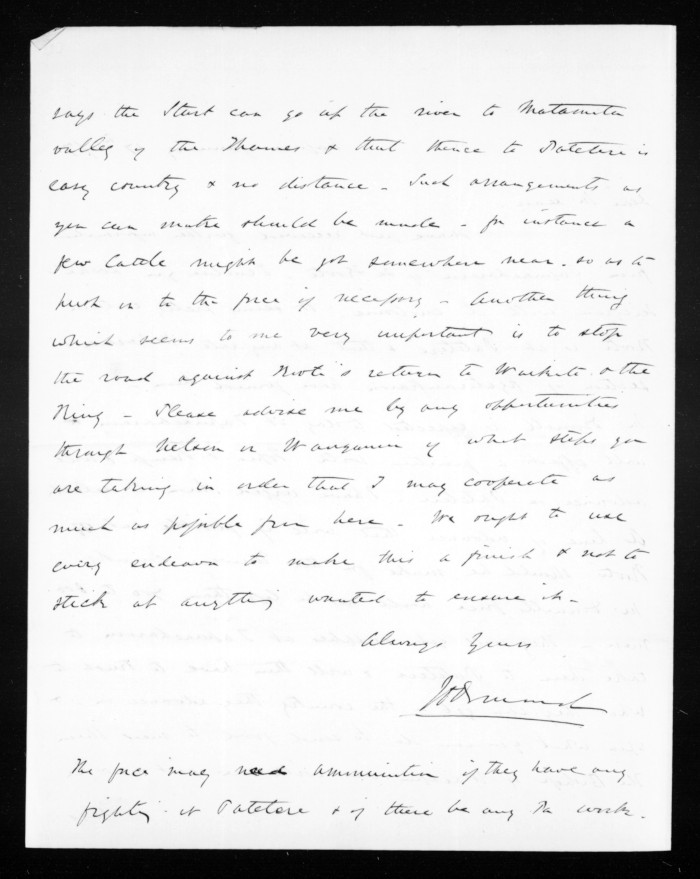 says the Sturt can go up the river to Matamata
valley of the Thames & that thence to Patetere is
easy country & no distance - Such arrangements as
you can make should be made - for instance a
few Cattle might be got somewhere near - so as to
push on to the force if necessary - Another thing
which seems to me very important is to stop
the road against Kooti's return to Waikato & the
King - Please advise me by any opportunities
through Nelson or Wanganui of what steps you
are taking in order that I may cooperate as
much as possible from here - We ought to use
every endeavor to make this a finish & not to
stick at anything wanted to ensure it -
Always Yours
The force may need ammunition if they have any
fighting at Patetere & if there be any work.